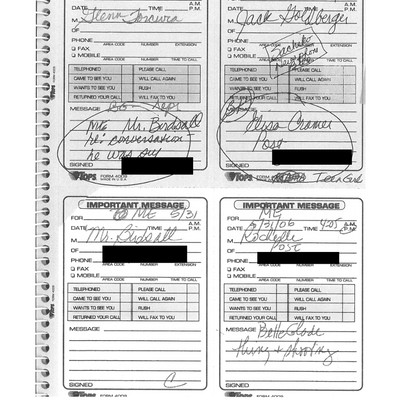 DATE TIME A.M. P.M.
M Glenn
OF
PHONE
FAX
MOBILE AREA CODE NUMBER EXTENSION
TELEPHONED PLEASE CALL
CAME TO SEE YOU WILL CALL AGAIN
WANTS TO SEE YOU RUSH
RETURNED YOUR CALL WILL FAX TO YOU
MESSAGE
ME Mr. Birdsall
re: conversation
he was
SIGNED
TOPS FORM 4009
MADE IN U.S.A.
DATE TIME P.M.
M Jack Goldberger
OF
PHONE
FAX
MOBILE AREA CODE NUMBER EXTENSION
TELEPHONED PLEASE CALL
CAME TO SEE YOU WILL CALL AGAIN
WANTS TO SEE YOU RUSH
RETURNED YOUR CALL WILL FAX TO YOU
Elisa Cramer
Post
SIGNED
TOPS
IMPORTANT MESSAGE
FOR ME 5/31
DATE TIME A.M. P.M.
M Mr Birdsall
OF
PHONE
FAX
MOBILE AREA CODE NUMBER TIME TO CALL
TELEPHONED PLEASE CALL
CAME TO SEE YOU WILL CALL AGAIN
WANTS TO SEE YOU RUSH
RETURNED YOUR CALL WILL FAX TO YOU
MESSAGE
SIGNED
TOPS FORM 4009
IMPORTANT MESSAGE
FOR ME
DATE 5/31/06 TIME 4:05 A.M. P.M.
M Rochelle
OF POST
PHONE
FAX
MOBILE AREA CODE NUMBER TIME TO CALL
TELEPHONED PLEASE CALL
CAME TO SEE YOU WILL CALL AGAIN
WANTS TO SEE YOU RUSH
RETURNED YOUR CALL WILL FAX TO YOU
MESSAGE Belle Glade
thing + shooting
SIGNED
TOPS FORM 4009